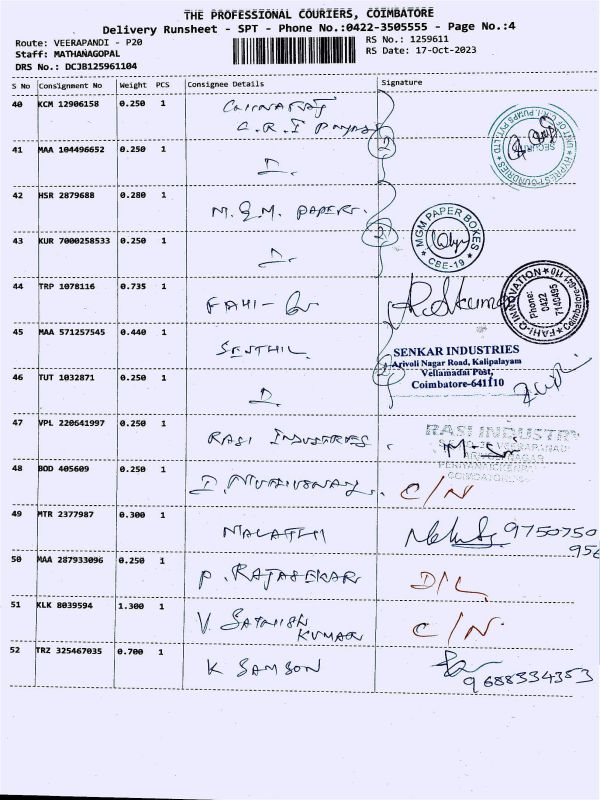 THE PROFESSIONAL COURIERS, COIMBATORE
Delivery Runsheet - SPT - Phone No.:0422-3505555 - Page No.:4
Route: VEERAPANDI - P20
Staff: MATHANAGOPAL
DRS No.: DCJB125961104
RS No.: 1259611
RS Date: 17-Oct-2023
S No Consignment No Weight PCS Consignee Details Signature
40 KCM 12906158 0.250 1
C.R.I Pumps
UNIT OF C.R.I. PUMPS PVT. LTD
SECURITY
41 MAA 104496652 0.250 1 D. 2
42 HSR 2879688 0.280 1 M.G.M. PAPERS.
MGM PAPER BOXES
CBE-19
43 KUR 7000258533 0.250 1 D. 2
44 TRP 1078116 0.735 1 FAHI-O
FAHI-O INNOVATION
Phone:
0422
7140495
Coimbatore-641 110
45 MAA 571257545 0.440 1 SENTHIL.
SENKAR INDUSTRIES
Arivoli Nagar Road, Kalipalayam
Vellamadai Post,
Coimbatore-641110
46 TUT 1032871 0.250 1 D. 2
47 VPL 220641997 0.250 1 RASI INDUSTRIES
RASI INDUSTRY
COIMBATORE
48 BOD 405609 0.250 1 C/N
49 MTR 2377987 0.300 1 MALATHI 9750750
956
50 MAA 287933096 0.250 1 P. RAJASEKAR D/L
51 KLK 8039594 1.300 1 V. SATHISH
KUMAR C/N
52 TRZ 325467035 0.700 1 K SAMSON 9688334353